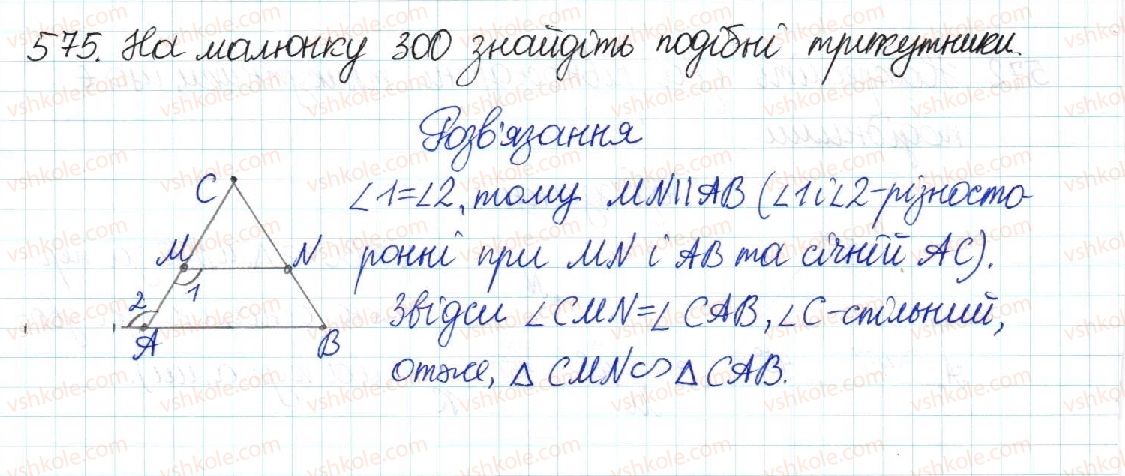 575. На малюнку 300 знайдіть подібні трикутники.
Розв'язання
∠1=∠2, тому MN||AB (∠1 і ∠2-різносто-
ронні при MN і AB та січній AC).
Звідси ∠CMN=∠CAB, ∠C-спільний,
отже, △CMN∽△CAB.
C
M
N
1
2
A
B
vshkole.com